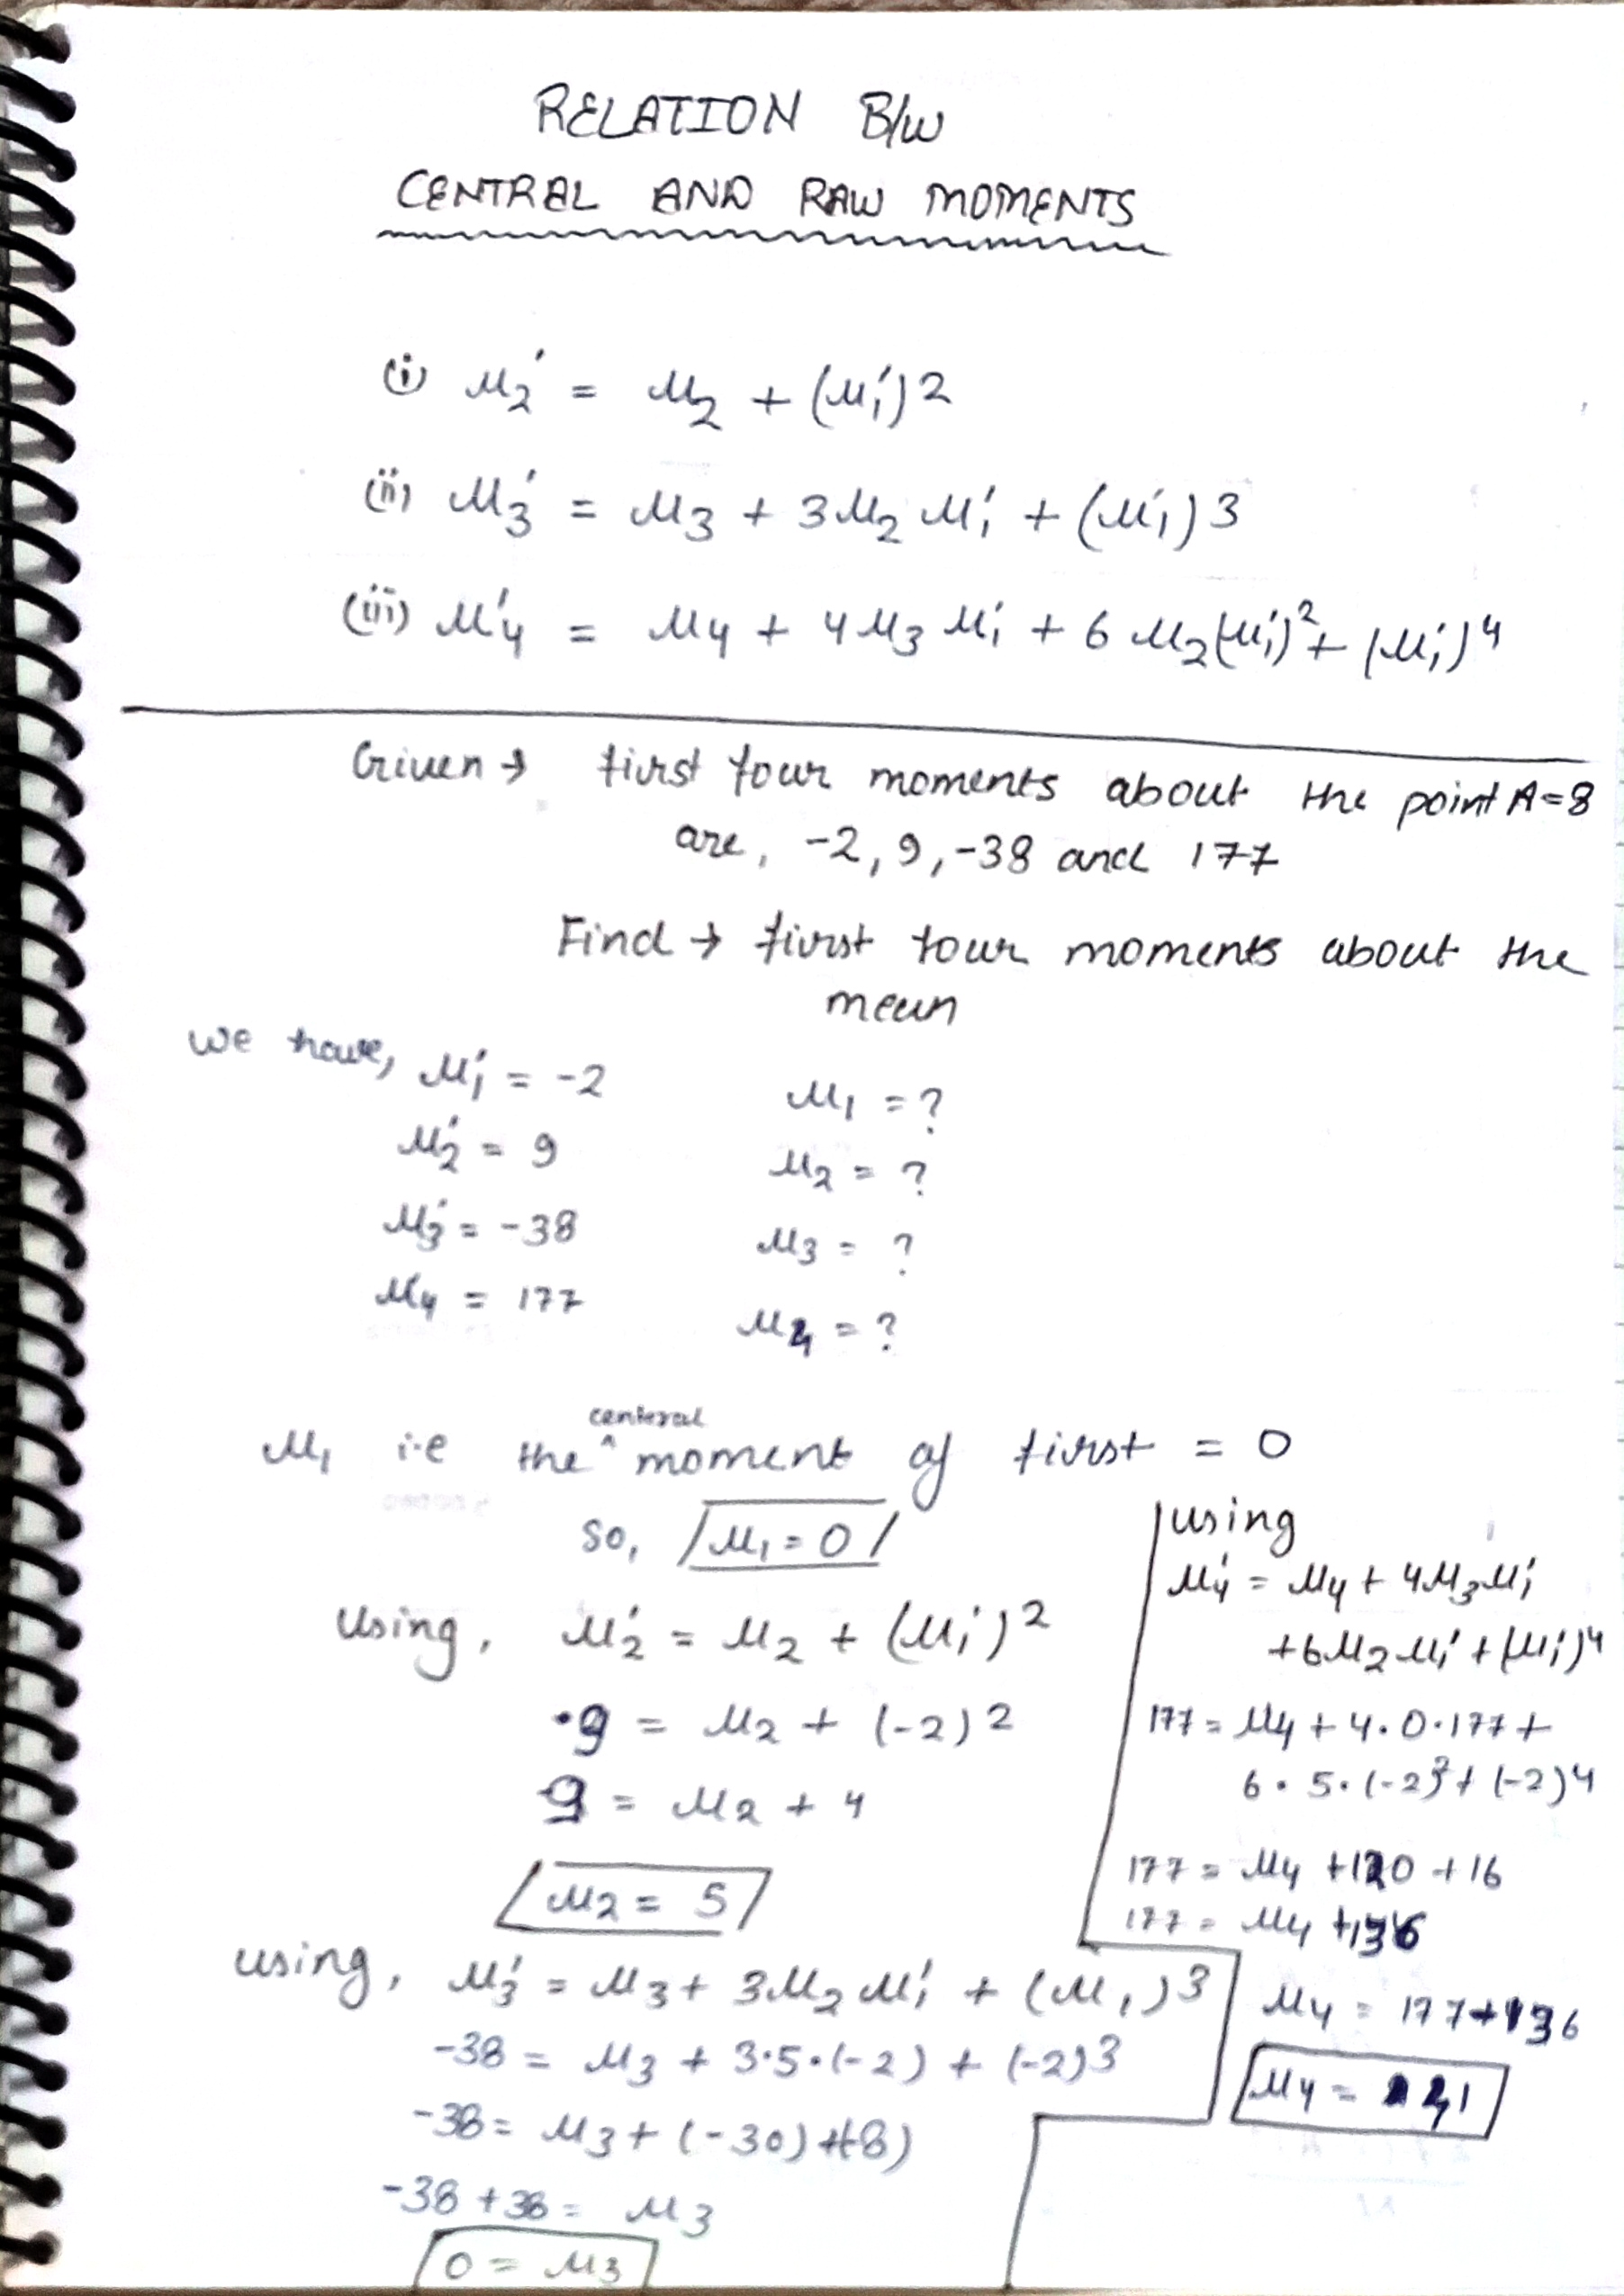 RELATION B/w
CENTRAL AND RAW MOMENTS
(i) μ2' = μ2 + (μ1')2
(ii) μ3' = μ3 + 3μ2 μ1' + (μ1')3
(iii) μ4' = μ4 + 4μ3 μ1' + 6 μ2(μ1')² + (μ1')⁴
Given → first four moments about the point A=8
are, -2, 9, -38 and 177
Find → first four moments about the
mean
we have, μ1' = -2
μ2' = 9
μ3' = -38
μ4' = 177
μ1 = ?
μ2 = ?
μ3 = ?
μ4 = ?
μ1 i.e the ^ central moment of first = 0
So, μ1 = 0
Using, μ2' = μ2 + (μ1')²
9 = μ2 + (-2)2
9 = μ2 + 4
μ2 = 5
using, μ3' = μ3 + 3μ2 μ1' + (μ1)3
-38 = μ3 + 3·5·(-2) + (-2)3
-38 = μ3 + (-30) + (8)
-38 + 38 = μ3
0 = μ3
using
μ4' = μ4 + 4μ3μ1'
+6μ2 μ1' + (μ1')4
177 = μ4 + 4·0·177 +
6·5·(-2)² + (-2)4
177 = μ4 +120 +16
177 = μ4 +136
μ4 = 177+136
μ4 = 41